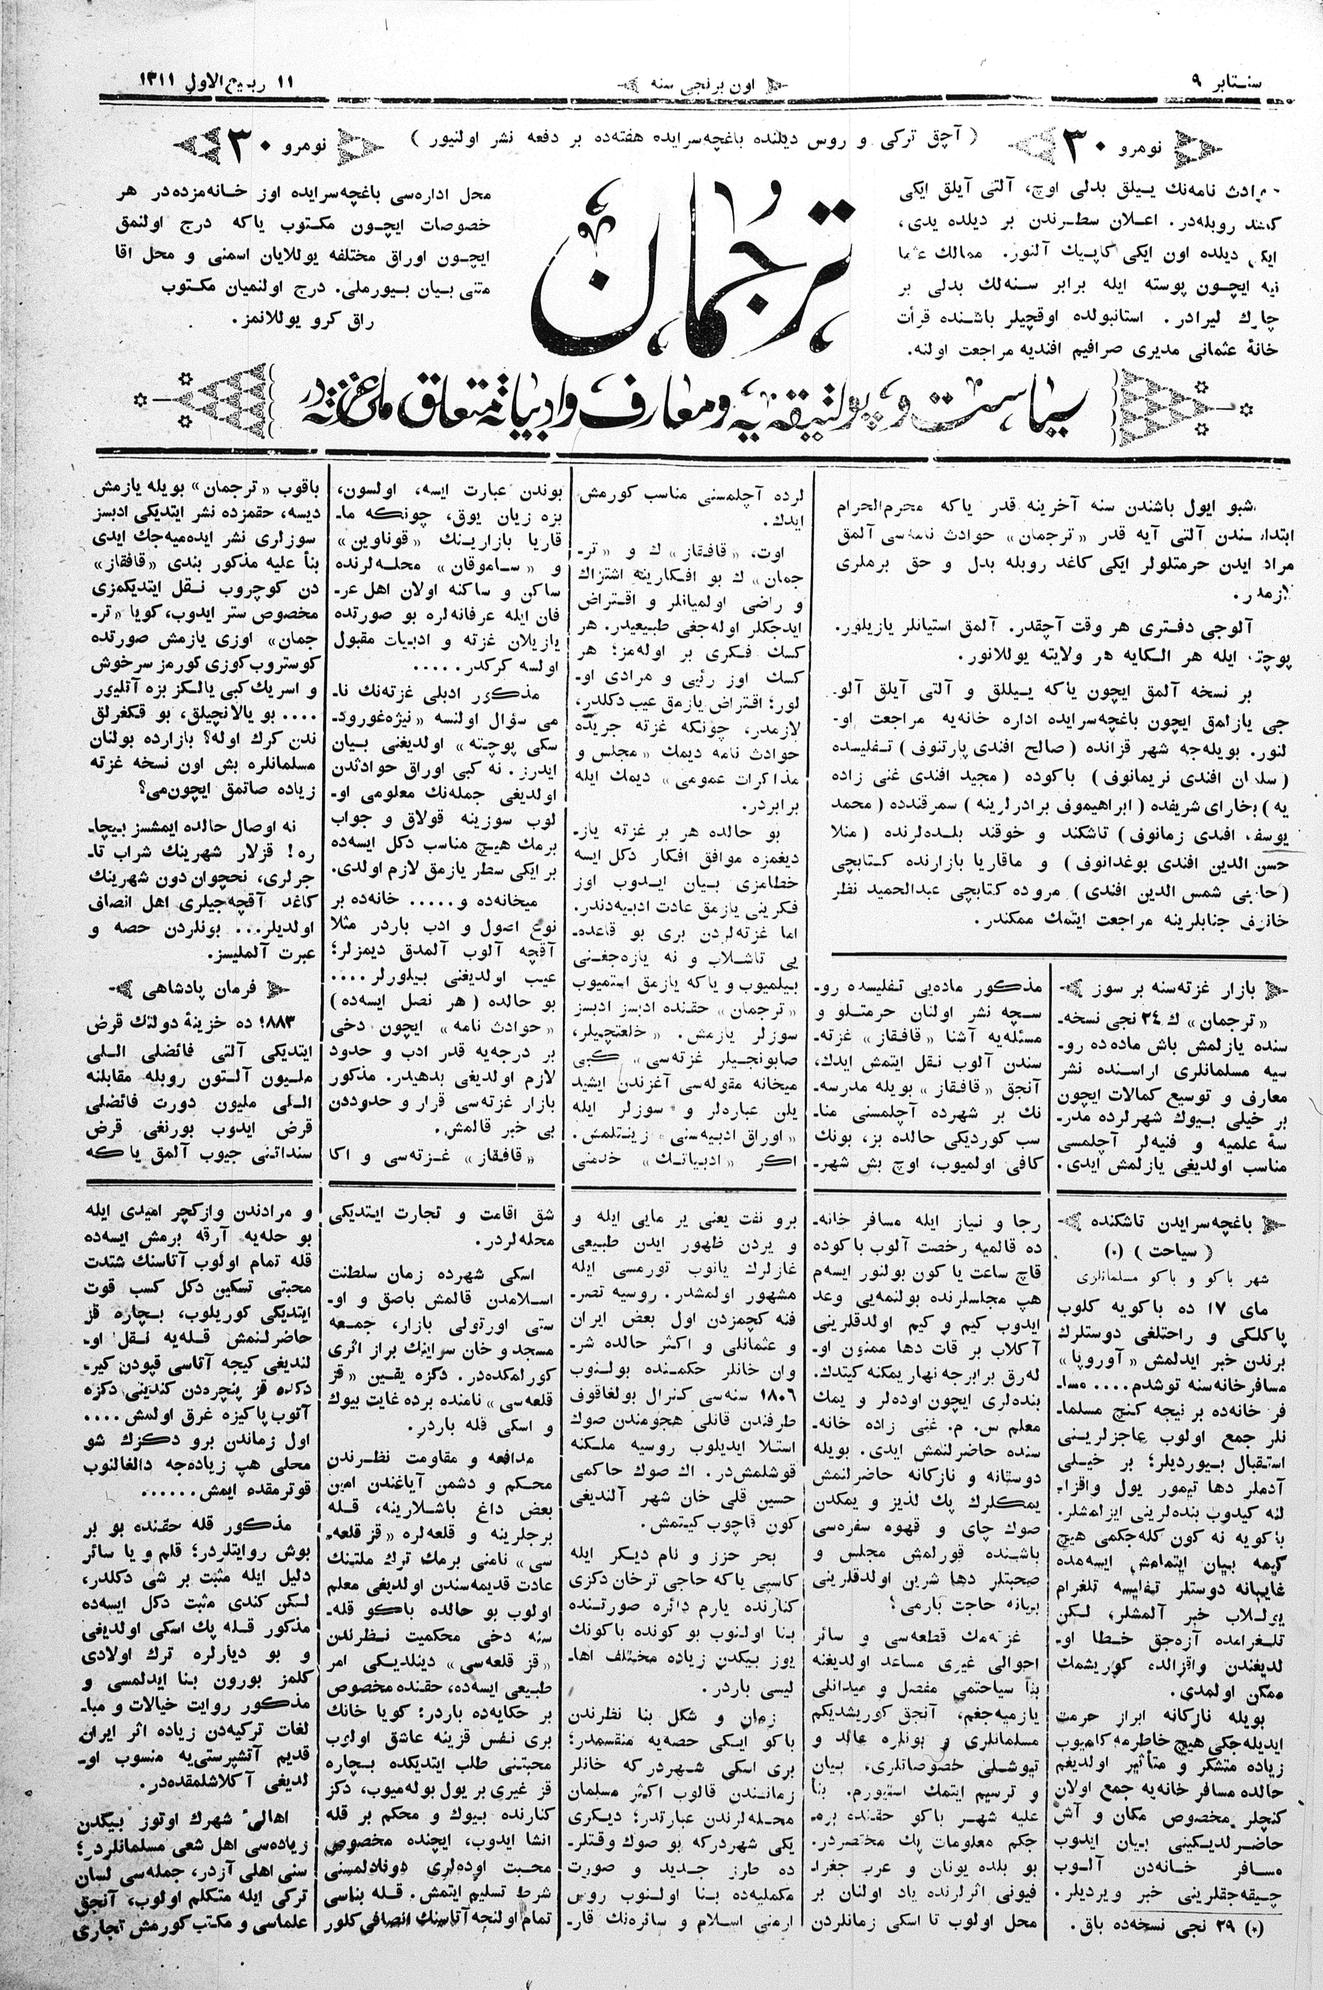 سنتابر ٩
اون برنجی سنه
١١ ربیع الاول ١٣١١
نومرو ٣٠
( آچق ترکی و روس دیلنده باغچه‌سرایده هفته‌ده بر دفعه نشر اولنیور )
نومرو ٣٠
نامه‌نك ییللق بدلی اوچ، آلتی آیلق ایکی
روبله‌در. اعلان سطرندن بر دیلده یدی،
دیلده اون ایکی کاپیك آلنور. ممالك عثما
نیه ایچون پوسته ایله برابر سنه‌لك بدلی بر
چارك لیرادر. استانبولده اوقچیلر باشنده قرأت
خانهٔ عثمانی مدیری صرافیم افندیه مراجعت اولنه.
ترجمان
محل اداره‌سی باغچه‌سرایده اوز خانه‌مزده‌در هر
خصوصات ایچون مکتوب یاکه درج اولنمق
ایچون اوراق مختلفه یوللایان اسمنی و محل اقا
متنی بیان بیورملی. درج اولنمیان مکتوب
راق کرو یوللانمز.
سیاست و پولتیقه‌یه و معارف و ادبیاته متعلق ملی غزته‌در
شبو ایول باشندن سنه آخرینه قدر یاکه محرم‌الحرام
ابتداسندن آلتی آیه قدر «ترجمان» حوادث نامه‌سی آلمق
مراد ایدن حرمتلولر ایکی کاغد روبله بدل و حق برملری
لازمدر.
آلوجی دفتری هر وقت آچقدر. آلمق استیانلر یازیلور.
پوچته ایله هر الکایه هر ولایته یوللانور.
بر نسخه آلمق ایچون یاکه ییللق و آلتی آیلق آلو
جی یازلمق ایچون باغچه‌سرایده اداره خانه‌یه مراجعت او-
لنور. بویله‌جه شهر قزانده (صالح افندی پارتنوف) تفلیسده
(سلطان افندی نریمانوف) باکوده (مجید افندی غنی زاده
یه) بخارای شریفده (ابراهیموف برادرلرینه) سمرقندده (محمد
یوسف افندی زمانوف) تاشکند و خوقند بلده‌لرنده (منلا
حسن الدین افندی بوغدانوف) و ماقاریا بازارنده کتابچی
(حاجی شمس الدین افندی) مروده کتابچی عبدالحمید نظر
خانوف جنابلرینه مراجعت ایتمك ممکندر.
بازار غزته‌سنه بر سوز
«ترجمان» ك ٢٤ نجی نسخه-
سنده یازلمش باش ماده‌ده رو-
سیه مسلمانلری اراسنده نشر
معارف و توسیع کمالات ایچون
بر خیلی بیوك شهرلرده مدر-
سهٔ علمیه و فنیه‌لر آچلمسی
مناسب اولدیغی یازلمش ایدی.
مذکور ماده‌یی تفلیسده رو-
سچه نشر اولنان حرمتلو و
مسئله‌یه آشنا «قافقاز» غزته-
سندن آلوب نقل ایتمش ایدك،
آنجق «قافقاز» بویله مدرسه-
نك بر شهرده آچلمسنی منا-
سب کوردیکی حالده بز، بونك
کافی اولمیوب، اوچ بش شهر-
لرده آچلمسنی مناسب کورمش
ایدك.
اوت، «قافقاز» ك و «تر-
جمان» ك بو افکارینه اشتراك
و راضی اولمیانلر و اقتراض
ایدجکلر اوله‌جغی طبیعیدر. هر
کسك فکری بر اوله‌مز؛ هر
کسك اوز رئیی و مرادی او-
لور؛ اقتراض یازمق عیب دکلدر،
لازمدر، چونکه غزته جریده
حوادث نامه دیمك «مجلس و
مذاکرات عمومی» دیمك ایله
برابردر.
بو حالده هر بر غزته یاز-
دیغمزه موافق افکار دکل ایسه
خطامزی بیان ایدوب اوز
فکرینی یازمق عادت ادبیه‌دندر.
اما غزته‌لردن بری بو قاعده-
یی تاشلاب و نه یازه‌جغنی
بیلمیوب و یاکه یازمق استمیوب
«ترجمان» حقنده ادبسز ادبسز
سوزلر یازمش. «خلعتچیلر،
صابونجیلر غزته‌سی» کبی
میخانه مقوله‌سی آغزندن ایشید
یلن عباره‌لر و سوزلر ایله
«اوراق ادبیه‌سنی» زینتلمش.
اکر «ادبیاتك» خدمتی
بوندن عبارت ایسه، اولسون،
بزه زیان یوق، چونکه ما-
قاریا بازارینك «قوناوین»
و «ساموقان» محله‌لرنده
ساکن و ساکنه اولان اهل عر-
فان ایله عرفانه‌لره بو صورتده
یازیلان غزته و ادبیات مقبول
اولسه کرکدر.....
مذکور ادبلی غزته‌نك نا-
می سؤال اولنسه «نیژه‌غورود-
سکی پوچته» اولدیغنی بیان
ایدرز. نه کبی اوراق حوادثدن
اولدیغی جمله‌نك معلومی او-
لوب سوزینه قولاق و جواب
برمك هیچ مناسب دکل ایسه‌ده
بر ایکی سطر یازمق لازم اولدی.
میخانه‌ده و..... خانه‌ده بر
نوع اصول و ادب باردر مثلا
آقچه آلوب آلمدق دیمزلر؛
عیب اولدیغنی بیلورلر....
بو حالده (هر نصل ایسه‌ده)
«حوادث نامه» ایچون دخی
بر درجه‌یه قدر ادب و حدود
لازم اولدیغی بدهیدر. مذکور
بازار غزته‌سی قرار و حدوددن
بی خبر قالمش.
«قافقاز» غزته‌سی و اکا
باقوب «ترجمان» بویله یازمش
دیسه، حقمزده نشر ایتدیکی ادبسز
سوزلری نشر ایده‌میه‌جك ایدی
بنأ علیه مذکور بندی «قافقاز»
دن کوچروب نقل ایتدیکمزی
مخصوص ستر ایدوب، کویا «تر-
جمان» اوزی یازمش صورتده
کوستروب کوزی کورمز سرخوش
و اسریك کبی یالکز بزه آتلیور
.... بو یالانچیلق، بو قکغرلق
ندن کرك اوله؟ بازارده بولنان
مسلمانلره بش اون نسخه غزته
زیاده صاتمق ایچون‌می؟
نه اوصال حالده ایمشسز بیچا-
ره! قزلار شهرینك شراب تا-
جرلری، نخچوان دون شهرینك
کاغد آقچه‌جیلری اهل انصاف
اولدیلر... بونلردن حصه و
عبرت آلملیسز.
فرمان پادشاهی
١٨٨٣ ده خزینهٔ دولتك قرض
ایتدیکی آلتی فائضلی اللی
ملیون آلتون روبله مقابلنه
اللی ملیون دورت فائضلی
قرض ایدوب بورنغی قرض
سنداتنی جیوب آلمق یاکه
باغچه‌سرایدن تاشکنده
(سیاحت) (٠)
شهر باکو و باکو مسلمانلری
مای ١٧ ده باکویه کلوب
پاکلکی و راحتلغی دوستلرك
برندن خبر ایدلمش «آوروپا»
مسافرخانه‌سنه توشدم.... مسا-
فر خانه‌ده بر نیجه کنچ مسلما-
نلر جمع اولوب عاجزلرینی
استقبال بیوردیلر؛ بر خیلی
آدملر دها تیمور یول واقزا-
لنه کیدوب بنده‌لرینی ایزلمشلر.
باکویه نه کون کله‌جکمی هیچ
کیمه بیان ایتمامش ایسه‌مده
غایبانه دوستلر تفلیسه تلغرام
یوللاب خبر آلمشلر، لکن
تلغرامده آزه‌جق خطا او-
لدیغندن واقزالده کوریشمك
ممکن اولمدی.
بویله نازکانه ابراز حرمت
ایدیله‌جکی هیچ خاطرمه کلمیوب
زیاده متشکر و متأثیر اولدیغم
حالده مسافر خانه‌یه جمع اولان
کنچلر مخصوص مکان و آش
حاضرلدیکینی بیان ایدوب
مسافر خانه‌دن آلوب
چیقه‌جقلرینی خبر ویردیلر.
(٠) ٢٩ نجی نسخه‌ده باق.
رجا و نیاز ایله مسافر خانه-
ده قالمیه رخصت آلوب باکوده
قاچ ساعت یا کون بولنور ایسه‌م
هپ مجلسلرنده بولنمه‌یی وعد
ایدوب کیم و کیم اولدقلرینی
آکلاب بر قات دها ممنون او-
له‌رق برابرجه نهار یمکنه کیتدك.
بنده‌لری ایچون اوده‌لر و یمك
معلم س. م. غنی زاده خانه-
سنده حاضرلنمش ایدی. بویله
دوستانه و نازکانه حاضرلنمش
یمکلرك پك لذیز و یمکدن
صوك چای و قهوه سفره‌سی
باشنده قورلمش مجلس و
صحبتلر دها شرین اولدقلرینی
بیانه حاجت بارمی؟
غزته‌مك قطعه‌سی و سائر
احوالی غیری مساعد اولدیغنه
بنأ سیاحتمی مفصل و میدانلی
یازمیه‌جغم، آنجق کوریشدیکم
مسلمانلری و بونلره عائد و
تیوشلی خصوصاتلری، بیان
و ترسیم ایتمك استیورم. بنأ
علیه شهر باکو حقنده برە-
جکم معلومات پك مختصردر.
بو بلده یونان و عرب جغرا-
فیونی اثرلرنده یاد اولنان بر
محل اولوب تا اسکی زمانلردن
برو نفت یعنی یر مایی ایله و
و یردن ظهور ایدن طبیعی
غازلرك یانوب تورمسی ایله
مشهور اولمشدر. روسیه تصر-
فنه کچمزدن اول بعض ایران
و عثمانلی و اکثر حالده شر-
وان خانلر حکمنده بولنوب
١٨٠٦ سنه‌سی کنرال بولغاقوف
طرفندن قانلی هجومندن صوك
استلا ایدیلوب روسیه ملکنه
قوشلمش‌در. اك صوك حاکمی
حسین قلی خان شهر آلندیغی
کون قاچوب کیتمش.
بحر حزز و نام دیکر ایله
کاسپی یاکه حاجی ترخان دکزی
کنارنده یارم دائره صورتنده
بنا اولنوب بو کونده باکونك
یوز بیکدن زیاده مختلف اها-
لیسی باردر.
زمان و شکل بنا نظرندن
باکو ایکی حصه‌یه منقسمدر؛
بری اسکی شهردرکه خانلر
زمانندن قالوب اکثر مسلمان
محله‌لرندن عبارتدر؛ دیکری
یکی شهردرکه بو صوك وقتلر-
ده طارز جدید و صورت
مکملیه‌ده بنا اولنوب روس
ارمنی اسلام و سائره‌نك قار-
شق اقامت و تجارت ایتدیکی
محله‌لردر.
اسکی شهرده زمان سلطنت
اسلامدن قالمش باصق و او-
ستی اورتولی بازار، جمعه
مسجد و خان سراینك براز اثری
کورلمکده‌در. دکزه یقین «قز
قلعه‌سی» نامنده برده غایت بیوك
و اسکی قله باردر.
مدافعه و مقاومت نظرندن
محکم و دشمن آیاغندن امین
بعض داغ باشلارینه، قله
برجلرینه و قلعه‌لره «قز قلعه-
سی» نامنی برمك ترك ملتینك
عادت قدیمه‌سندن اولدیغی معلم
اولوب بو حالده باکو قله-
سنه دخی محکمیت نظرندن
«قز قلعه‌سی» دینلدیکی امر
طبیعی ایسه‌ده، حقنده مخصوص
بر حکایه‌ده باردر: کویا خانك
بری نفس قزینه عاشق اولوب
محبتنی طلب ایتدیکده بیچاره
قز غیری بر یول بوله‌میوب، دکز
کنارنده بیوك و محکم بر قله
انشا ایدوب، ایچنده مخصوص
محبت اوده‌لری دونادلمسنی
شرط تسلیم ایتمش. قله بناسی
تمام اولنجه آتاسنك انصافی کلور
و مرادندن وازکچر امیدی ایله
بو حله‌یه آرقه برمش ایسه‌ده
قله تمام اولوب آتاسنك شتدت
محبتی تسکین دکل کسب قوت
ایتدیکی کوریلوب، بیچاره قز
حاضرلنمش قله‌یه نقل او-
لندیغی کیجه آتاسی قپودن کیر-
دکده قز پنچره‌دن کندینی دکزه
آتوب پاکیزه غرق اولمش....
اول زماندن برو دکزك شو
محلی هپ زیاده‌جه دالغالنوب
قوترمقده ایمش......
مذکور قله حقنده بو بر
بوش روایتلردر؛ قلم و یا سائر
دلیل ایله مثبت بر شی دکلدر،
لکن کندی مثبت دکل ایسه‌ده
مذکور قله پك اسکی اولدیغی
و بو دیارلره ترك اولادی
کلمز بورون بنا ایدلمسی و
مذکور روایت خیالات و مبا-
لغات ترکیه‌دن زیاده اثر ایران
قدیم آتشپرستی‌یه منسوب او-
لدیغی آکلاشلمقده‌در.
اهالیٔ شهرك اوتوز بیکدن
زیاده‌سی اهل شعی مسلمانلردر؛
سنی اهلی آزدر، جمله‌سی لسان
ترکی ایله متکلم اولوب، آنجق
علماسی و مکتب کورمش تجاری